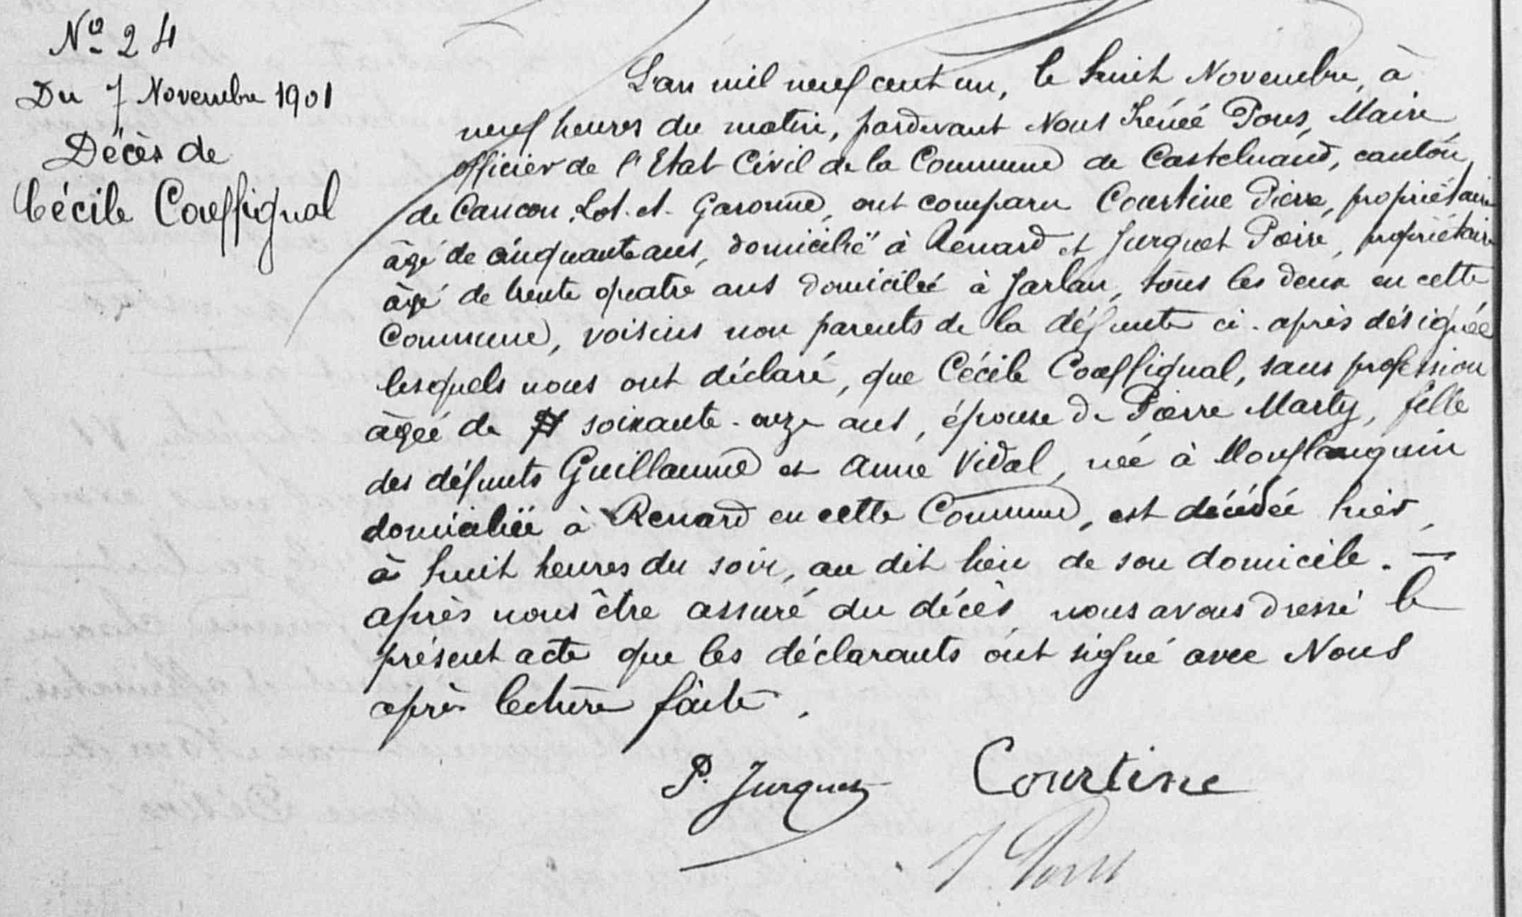 No 24
Du 7 Novembre 1901
Décès de
Cécile Coeffignal
L'an mil neuf cent un, le huit Novembre, à
neuf heures du matin, pardevant Nous Irénée Pons, Maire
officier de l'Etat Civil de la Commune de Castelnaud, canton
de Cancon, Lot-et-Garonne, ont comparu Courtine Pierre, propriétaire
âgé de cinquante ans, domicilié à Renard et Jurquet Pierre, propriétaire
âgé de trente quatre ans domicilié à Jarlan, tous les deux en cette
Commune, voisins non parents de la défunte ci-après désignée
lesquels nous ont déclaré, que Cécile Coeffignal, sans profession
âgée de soixante-onze ans, épouse de Pierre Marty, fille
des défunts Guillaume et Anne Vidal, née à Monflanquin
domiciliée à Renard en cette Commune, est décédée hier,
à huit heures du soir, au dit lieu de son domicile. —
après nous être assuré du décès, nous avons dressé le
présent acte que les déclarants ont signé avec Nous
après lecture faite.
P. Jurquet Courtine
I Pons